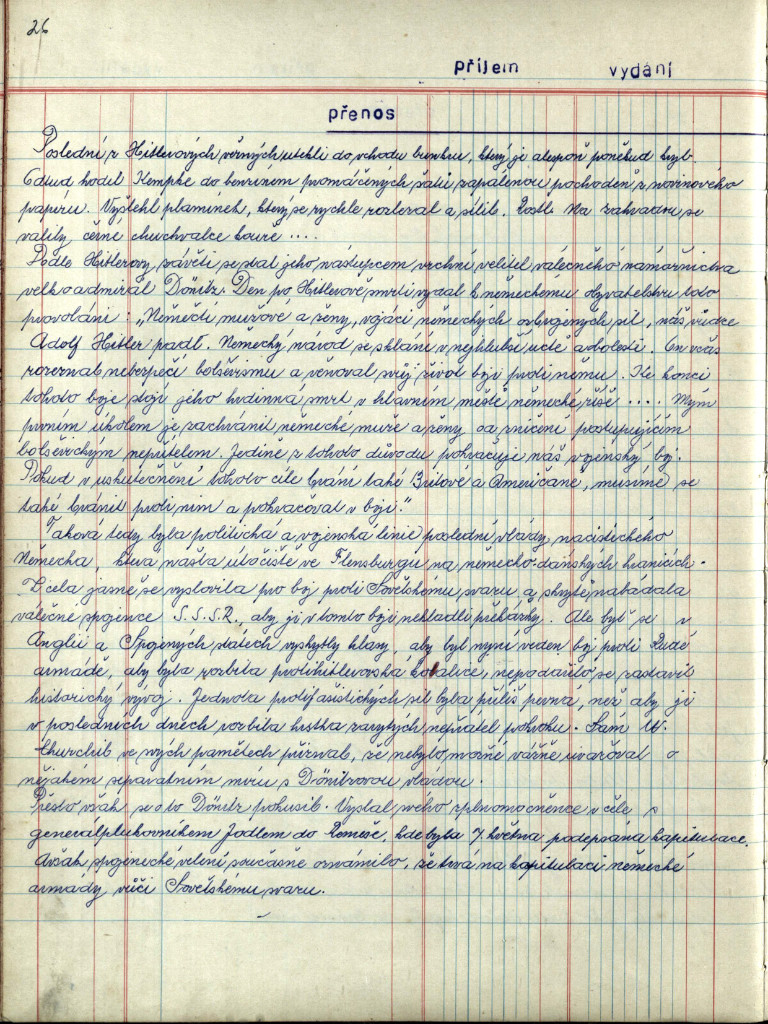 26
příjem vydání
přenos
Poslední z Hitlerových věrných utekli do vchodu bunkru, který je alespoň poněkud kryl.
Odtud hodil Kempke do benzinem promáčených šatů zapálenou pochodeň z novinového
papíru. Vyšlehl plamínek, který se rychle rozlezal a sílil. Rostl. Na zahradu se
valily černé chuchvalce kouře ....
Podle Hitlerovy závěti se stal jeho nástupcem vrchní velitel válečného námořnictva
velkoadmirál Dönitz. Den po Hitlerově smrti vydal k německému obyvatelstvu toto
provolání: „Němečtí mužové a ženy, vojáci německých ozbrojených sil, náš vůdce
Adolf Hitler padl. Německý národ se sklání v nejhlubší úctě a bolesti. On včas
rozeznal nebezpečí bolševismu a věnoval svůj život boji proti němu. Ke konci
tohoto boje stojí jeho hrdinná smrt v hlavním městě německé říše .... Mým
prvním úkolem je zachránit německé muže a ženy od zničení postupujícím
bolševickým nepřítelem. Jedině z tohoto důvodu pokračuje náš vojenský boj.
Pokud v uskutečnění tohoto cíle brání také Britové a Američané, musíme se
také bránit proti nim a pokračovat v boji."
Taková tedy byla politická a vojenská linie poslední vlády nacistického
Německa, která našla útočiště ve Flensburgu na německo-dánských hranicích.
Zcela jasně se vyslovila pro boj proti Sovětskému svazu a skrytě nabádala
válečné spojence S.S.S.R., aby jí v tomto boji nekladli překážky. Ale byť se v
Anglii a Spojených státech vyskytly hlasy, aby byl nyní veden boj proti Rudé
armádě, aby byla rozbita protihitlerovská koalice, nepodařilo se zastavit
historický vývoj. Jednota protifašistických sil byla příliš pevná, než aby ji
v posledních dnech rozbila hrstka zarytých nepřátel pokroku. Sám W.
Churchill ve svých pamětech přiznal, že nebylo možné vážně uvažovat o
nějakém separátním míru s Dönitzovou vládou.
Přesto však se o to Dönitz pokusil. Vyslal svého zplnomocněnce v čele s
generálplukovníkem Jodlem do Remeše, kde byla 7 května podepsána kapitulace.
Avšak spojenecké velení současně oznámilo, že trvá na kapitulaci německé
armády vůči Sovětskému svazu.